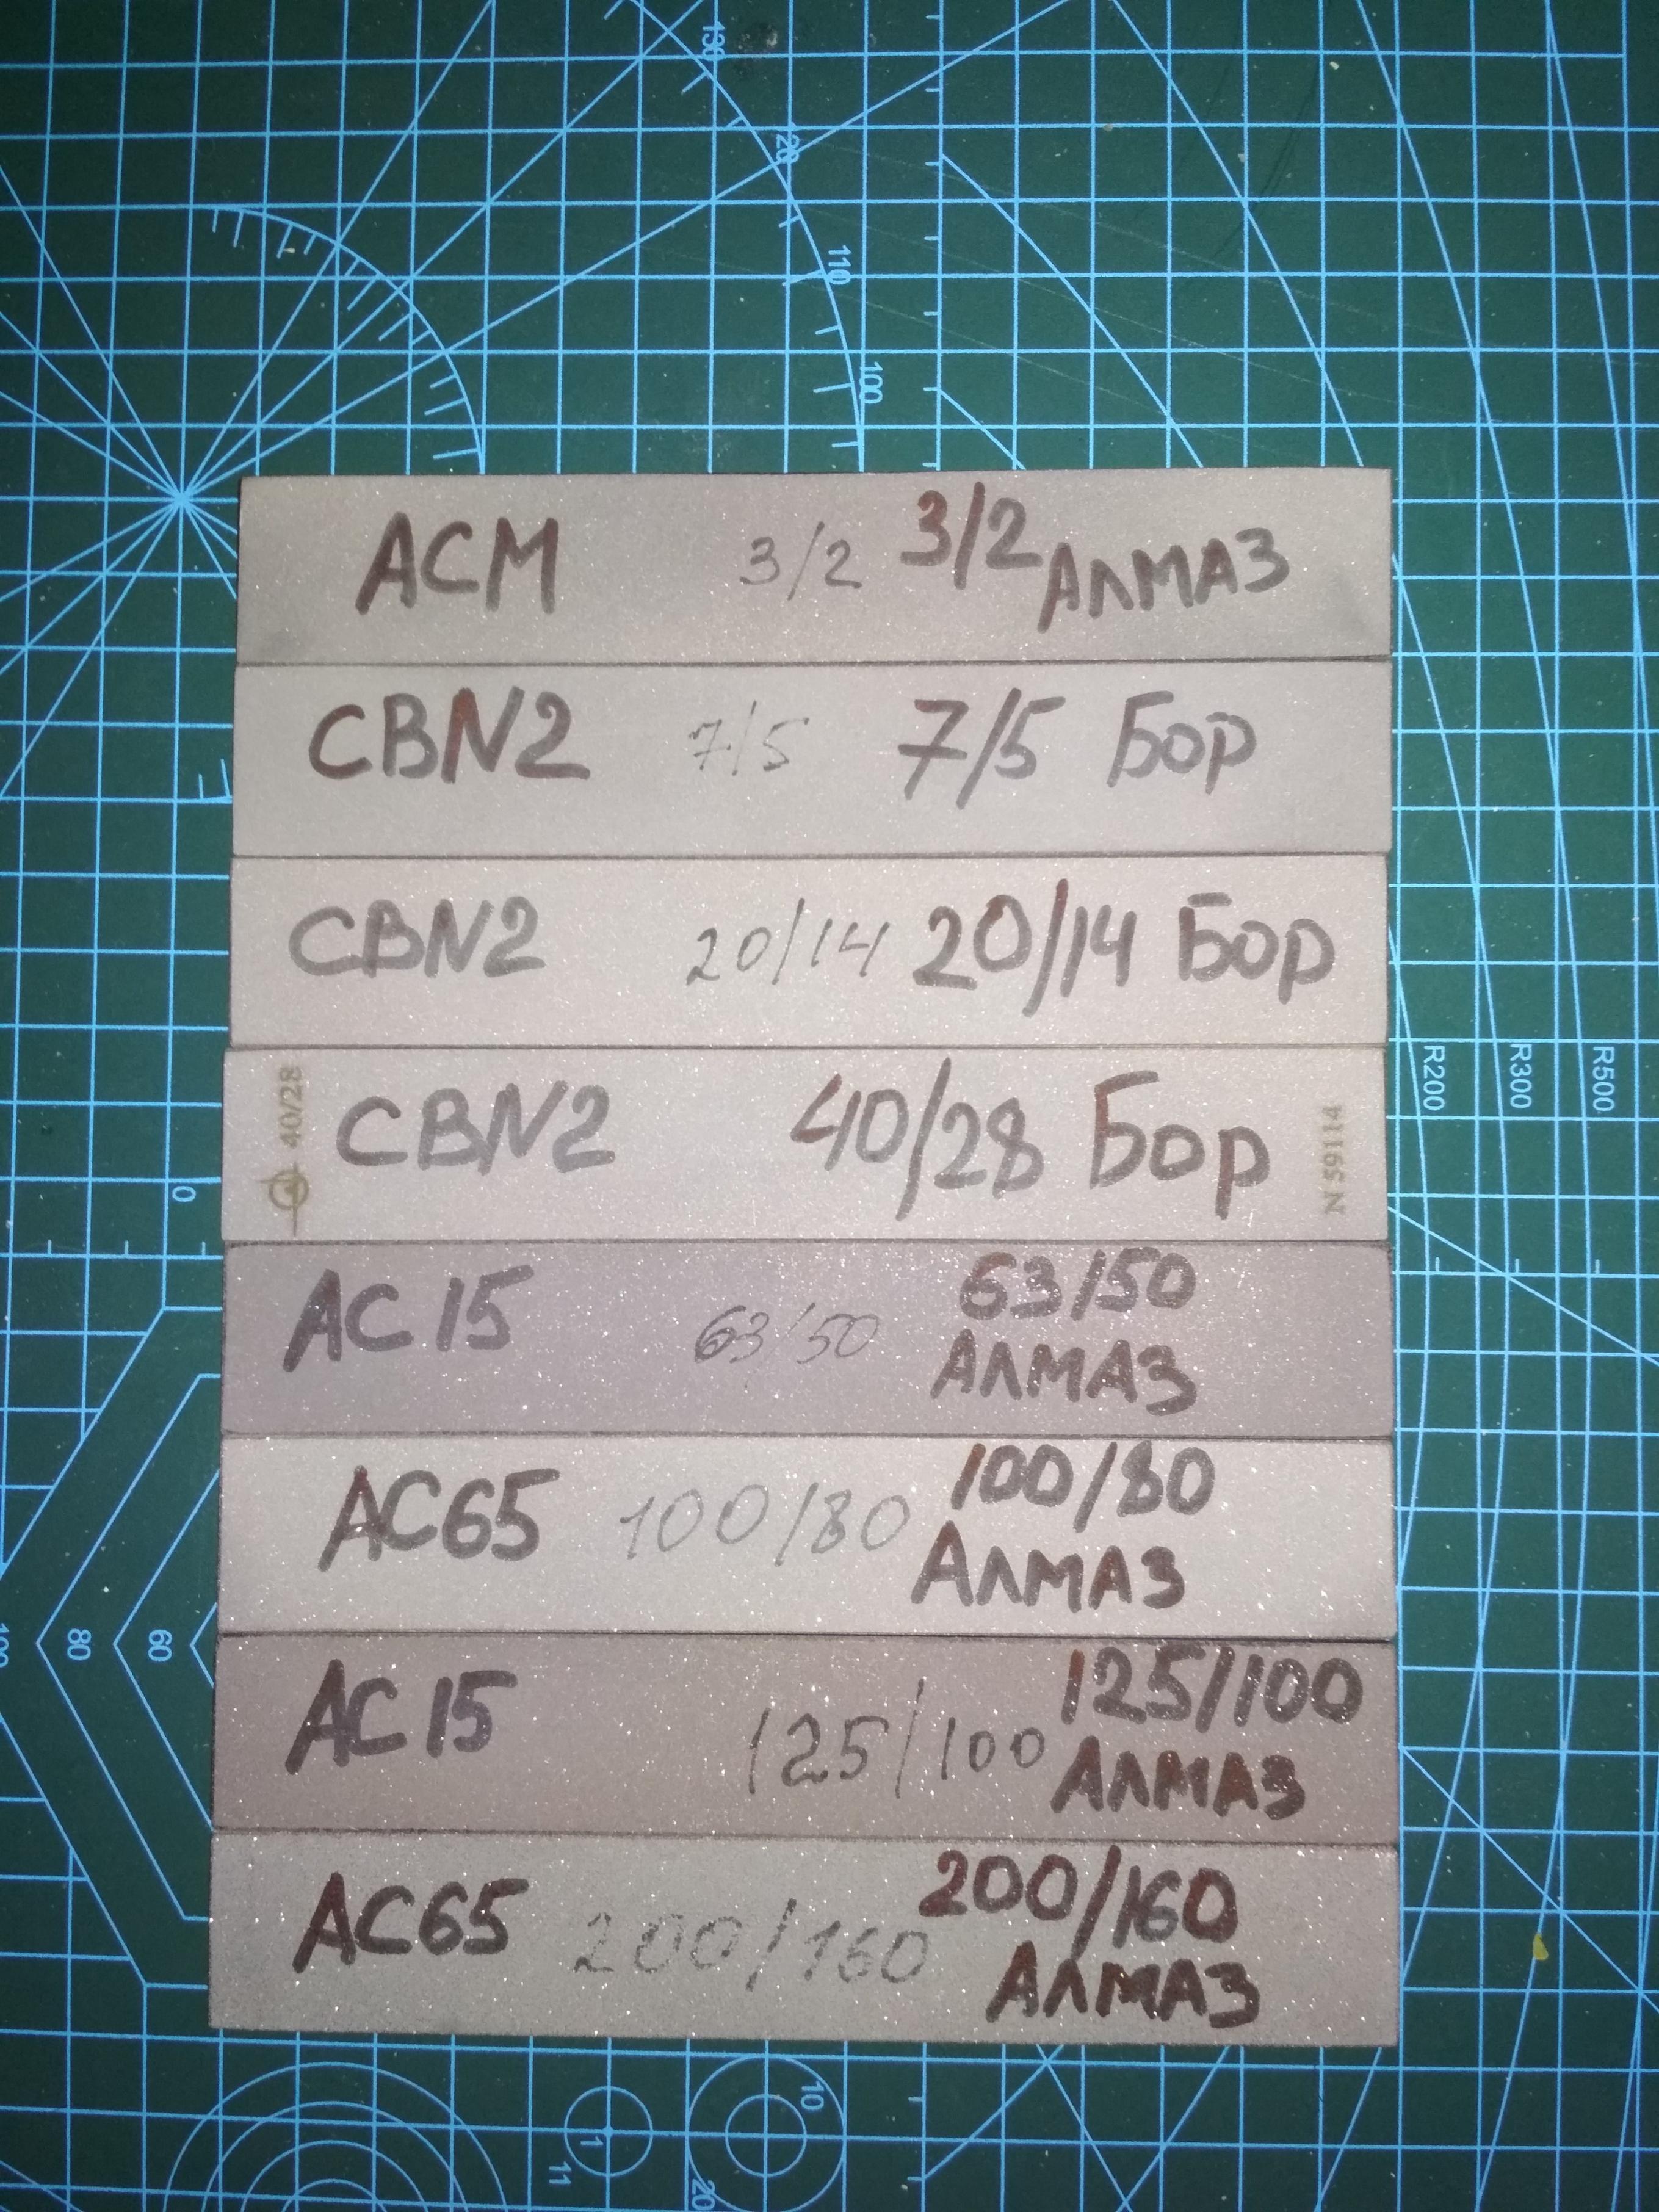 130
20
110
100
АСМ 3/2 3/2 АЛМАЗ
CBN2 7/5 7/5 Бор
CBN2 20/14 20/14 Бор
R200 R300 R500
40/28 CBN2 40/28 Бор N 59114
0
АС 15 63/50 63/50
АЛМАЗ
АС65 100/80 100/80
АЛМАЗ
80 60
АС 15 125/100 125/100
АЛМАЗ
АС65 200/160 200/160
АЛМАЗ
10
1
11
20